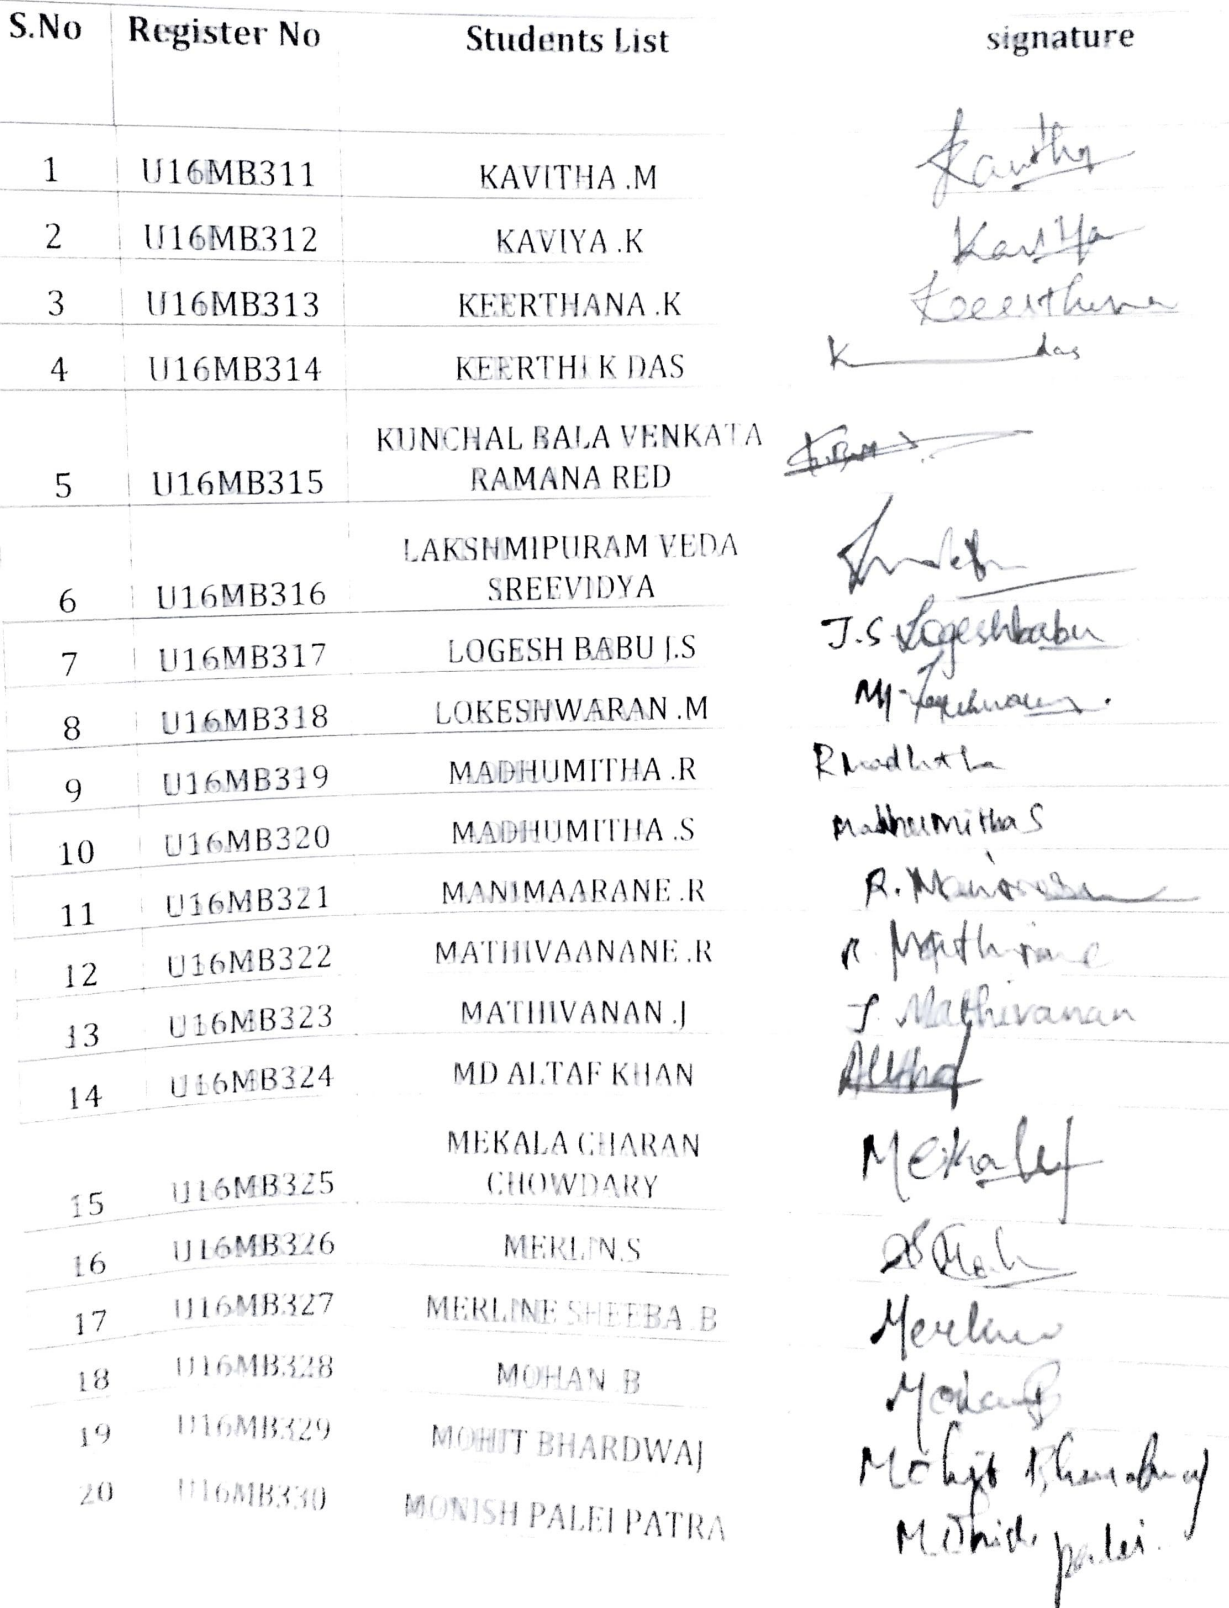 S.No Register No Students List signature
1 U16MB311 KAVITHA .M Kavitha
2 U16MB312 KAVIYA .K Kaviya
3 U16MB313 KEERTHANA .K Keerthana
4 U16MB314 KEERTHI K DAS K das
KUNCHAL BALA VENKATA
5 U16MB315 RAMANA RED
LAKSHMIPURAM VEDA
6 U16MB316 SREEVIDYA
7 U16MB317 LOGESH BABU J.S J.S Logeshbabu
8 U16MB318 LOKESHWARAN .M
9 U16MB319 MADHUMITHA .R
10 U16MB320 MADHUMITHA .S Madhumitha S
11 U16MB321 MANIMAARANE .R R.
12 U16MB322 MATHIVAANANE .R R.
13 U16MB323 MATHIVANAN .J J. Mathivanan
14 U16MB324 MD ALTAF KHAN
MEKALA CHARAN
15 U16MB325 CHOWDARY
16 U16MB326 MERLIN.S
17 U16MB327 MERLINE SHEEBA .B
18 U16MB328 MOHAN .B Mohan B
19 U16MB329 MOHIT BHARDWAJ Mohit Bhardwaj
20 U16MB330 MONISH PALEI PATRA Monish palei